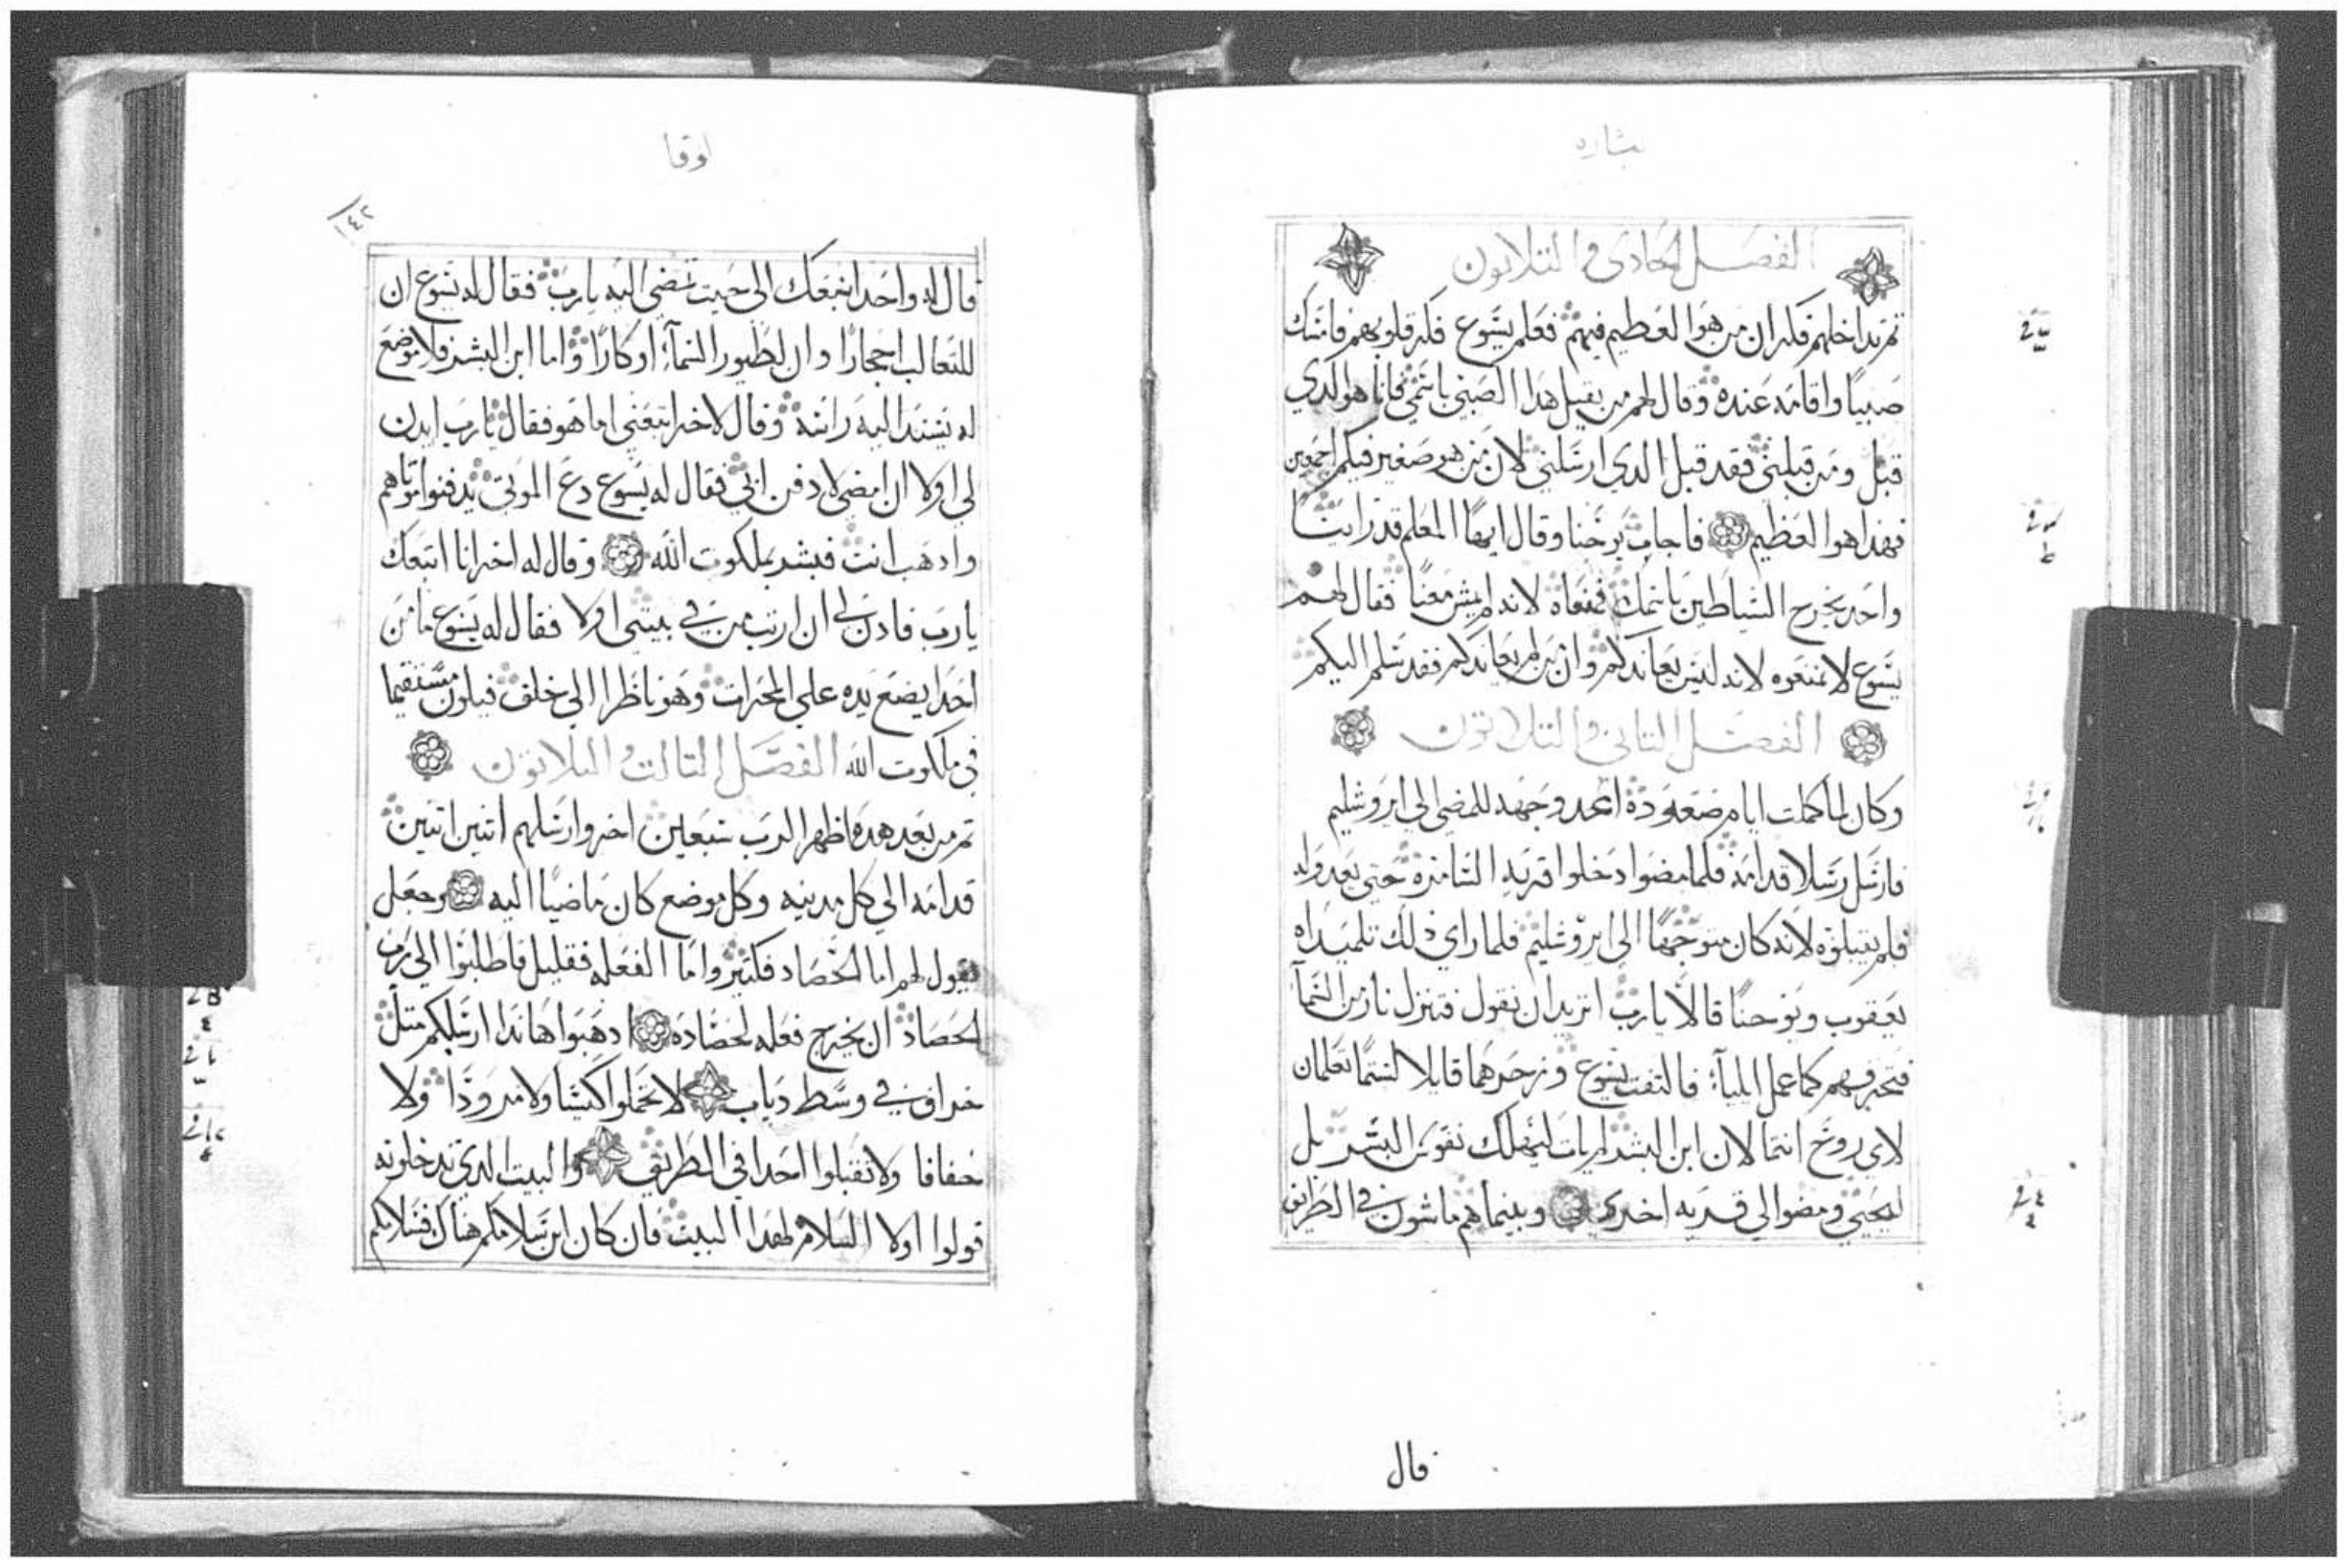 بشاره
الفصل الحادي والتلاتون
تم تداخلهم فكر ان من هوا العظيم فيهم فعلم يسوع فكر قلوبهم فامسك
صبيا واقامه عنده وقال لهم من يقبل هدا الصبي باسمي فانا هو الدي
قبل ومن قبلني فقد قبل الدي ارسلني لان من هو صغير فيكم اجمعين
فهدا هوا العظيم فاجاب يوحنا وقال ايها المعلم قد راينا
واحد يخرج الشياطين باسمك فمنعاه لانه لم يمش معنا فقال لهم
يسوع لا تمنعوه لانه ليس يعاندكم وان من لم يعاندكم فقد سلم اليكم
الفصل التاني والتلاتون
وكان لما كملت ايام صعوده اتجه وجهه للمضي الي ايروشليم
فارسل رسلا قدامه فلما مضوا دخلوا قريه السامره حتي يعدوا له
فلم يقبلوه لانه كان متوجها الي ايروشليم فلما راي دلك تلميداه
يعقوب ويوحنا قالا يارب اتريد ان نقول فتنزل نار من السما
فتحرقهم كما عمل اليآ فالتفت يسوع وزجرهما قايلا لستما تعلمان
لاي روح انتما لان ابن البشر لم يات ليهلك نفوس البشر بل
ليحيي ومضوا الي قريه اخري وبينما هم ماشون في الطريق
قال
لوقا
١٤٢
قال له واحد اتبعك الي حيت تمضي اليه يارب فقال له يسوع ان
للتعالب احجارا وان لطيور السمآ اوكارا واما ابن البشر فلا موضع
له يسند اليه راسه وقال لاخر اتبعني اما هو فقال يارب ايدن
لي اولا ان امضي لادفن ابي فقال له يسوع دع الموتي يدفنوا موتاهم
وادهب انت فبشر بملكوت الله وقال له اخر انا اتبعك
يارب فادن لي ان ارتب من في بيتي اولا فقال له يسوع ما من
احدا يضع يده علي المحرات وهو ناظرا الي خلف فيكون مستقيما
في ملكوت الله الفصل التالت والتلاتون
تم من بعد هده اظهر الرب سبعين اخر وارسلهم اتنين اتنين
قدامه الي كل مدينه وكل موضع كان ماضيا اليه وجعل
يقول لهم اما الحصاد فكتير واما الفعله فقليل فاطلبوا الي رب
الحصاد ان يخرج فعله لحصاده ادهبوا هاندا ارسلكم متل
خراف في وسط دياب لا تحملوا كيسا ولا مزودا ولا
خفافا ولا تقبلوا احدا في الطريق والبيت الدي تدخلونه
قولوا اولا السلام لهدا البيت فان كان ابن سلامكم هناك فسلامكم